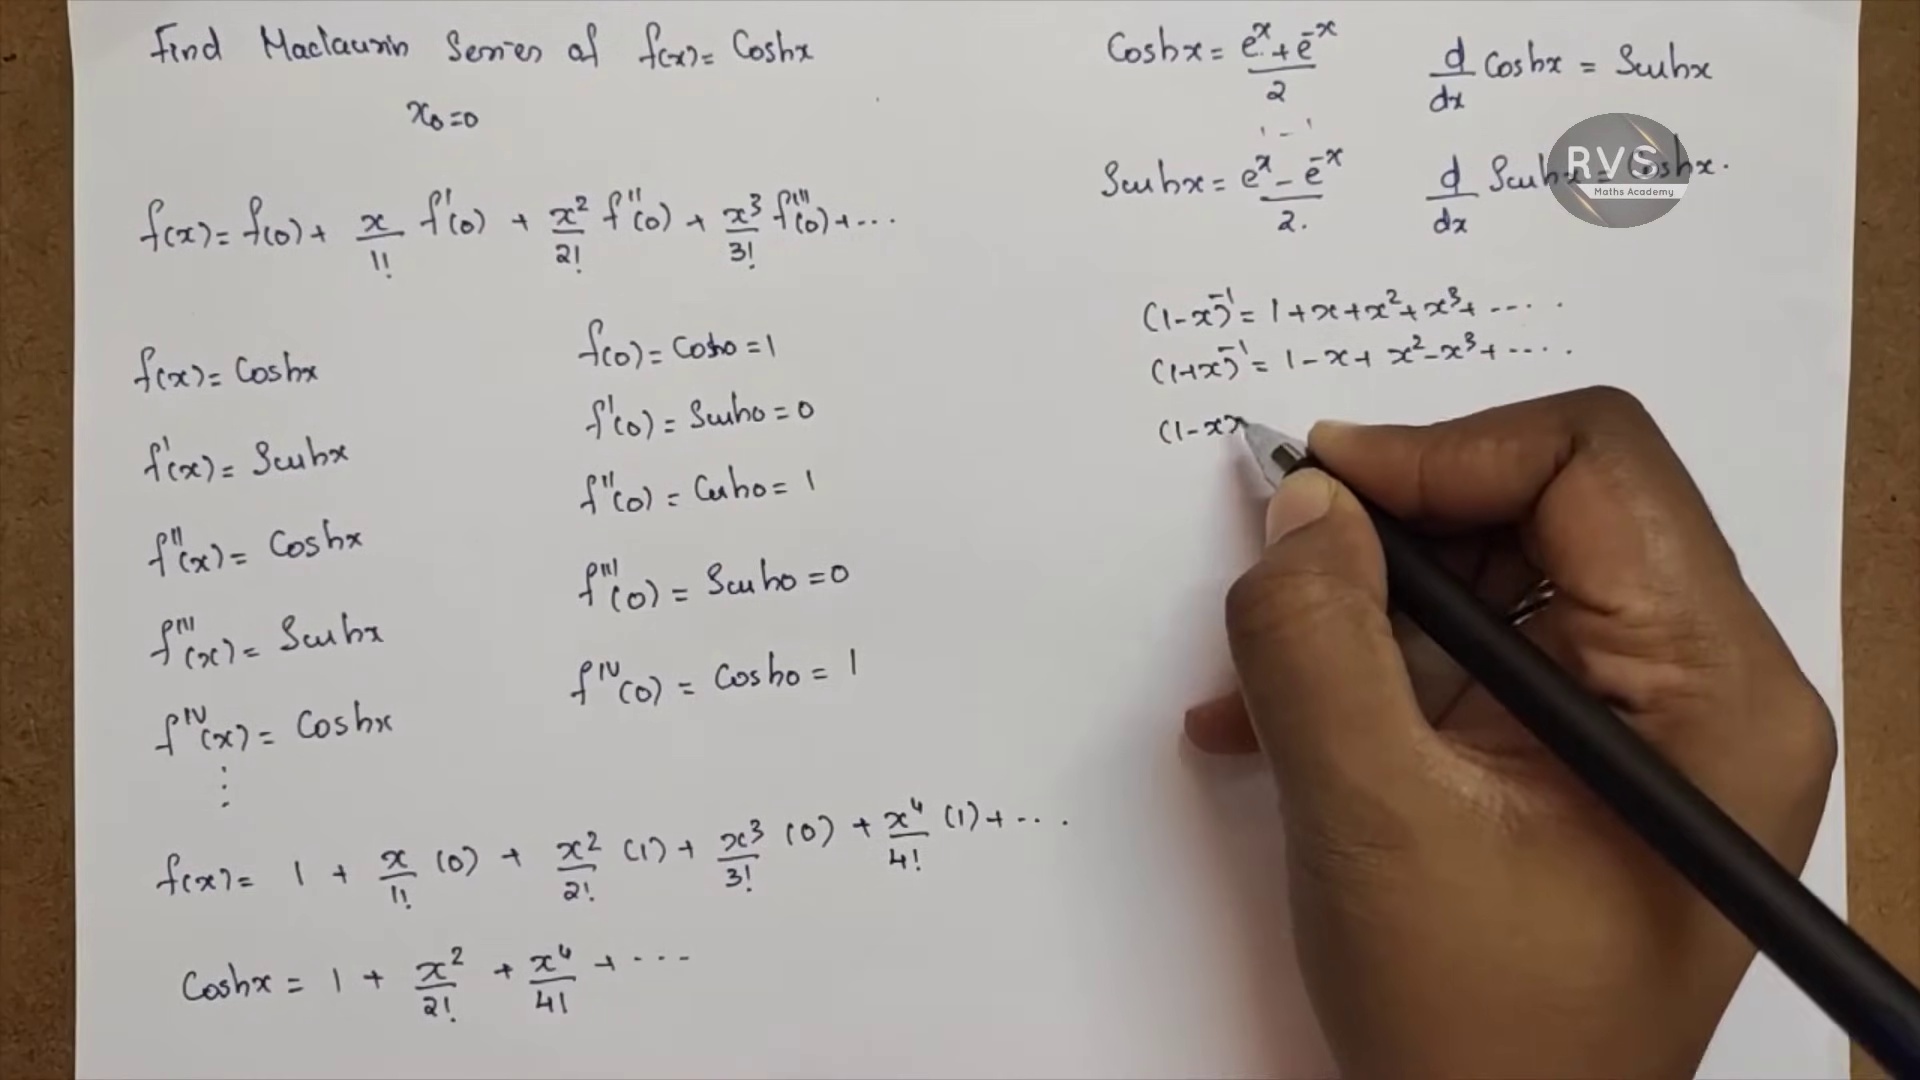 Find Maclaurin Series of f(x) = Coshx
x₀=0
f(x) = f(0) + x/1! f'(0) + x²/2! f''(0) + x³/3! f'''(0) + ...
f(x) = Coshx
f'(x) = Sinhx
f''(x) = Coshx
f'''(x) = Sinhx
f^IV(x) = Coshx
⋮
f(0) = Cosh0 = 1
f'(0) = Sinh0 = 0
f''(0) = Cosh0 = 1
f'''(0) = Sinh0 = 0
f^IV(0) = Cosh0 = 1
f(x) = 1 + x/1! (0) + x²/2! (1) + x³/3! (0) + x⁴/4! (1) + ...
Coshx = 1 + x²/2! + x⁴/4! + ...
Coshx = (e^x + e^-x)/2
d/dx Coshx = Sinhx
1 - 1
Sinhx = (e^x - e^-x)/2.
d/dx Sinhx = Coshx.
RVS
Maths Academy
(1-x)^-1 = 1+x+x²+x³+ .....
(1+x)^-1 = 1-x+x²-x³+ .....
(1-x)